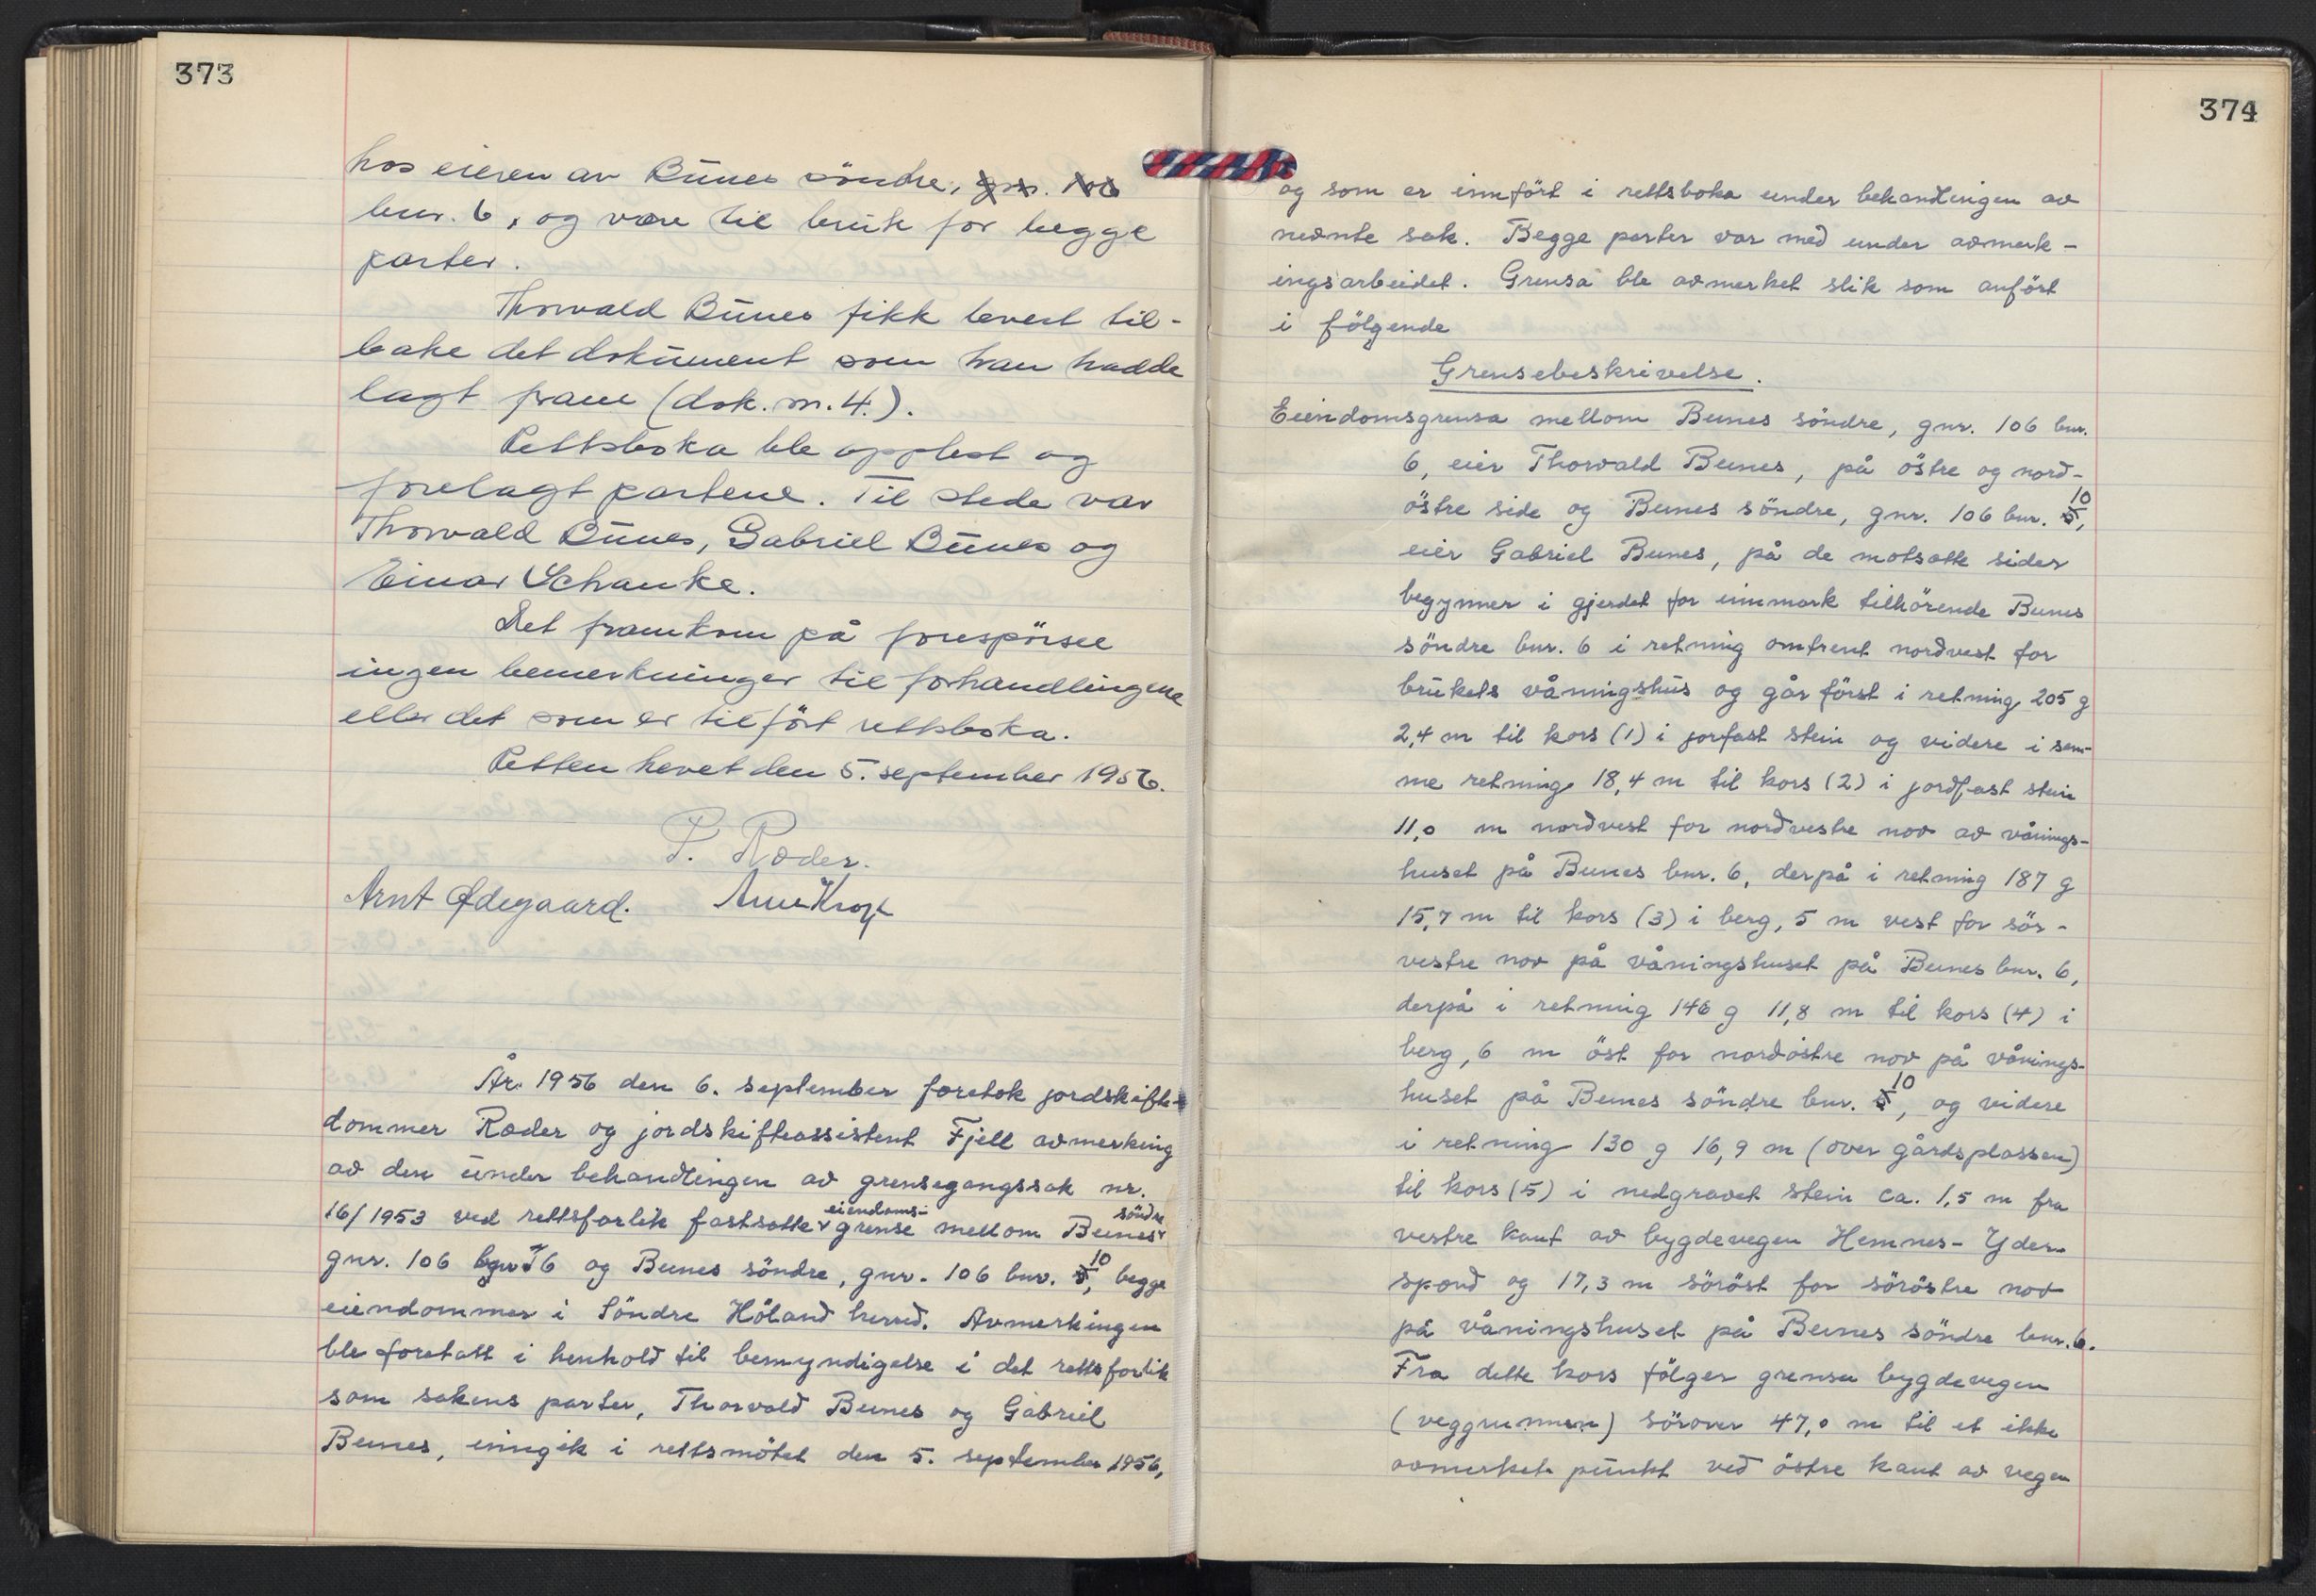 373
hos eieren av Bunes söndre, gnr. 106
bnr. 6, og være til bruk for begge
parter.
Thorvald Bunes fikk levert til-
bake det dokument som han hadde
lagt fram (dok. nr. 4.).
Rettsboka ble opplest og
forelagt partene. Til stede var
Thorvald Bunes, Gabriel Bunes og
Einar Schanke.
Det framkom på forespörsel
ingen bemerkninger til forhandlingene
eller det som er tilfört rettsboka.
Retten hevet den 5. september 1956.
P. Ræder.
Arnt Ødegaard.
År 1956 den 6. september foretok jordskifte-
dommer Ræder og jordskifteassistent Fjell avmerking
av den under behandlingen av grensegangssak nr.
16/1953 ved rettsforlik fastsatte eiendoms-grense mellom Bunes söndre
gnr. 106 bnr 6 og Bunes söndre, gnr. 106 bnr. 10, begge
eiendommer i Söndre Höland herred. Avmerkingen
ble foretatt i henhold til bemyndigelse i det rettsforlik
som sakens parter, Thorvald Bunes og Gabriel
Bunes, inngikk i rettsmötet den 5. september 1956,
374
og som er innfört i rettsboka under behandlingen av
nevnte sak. Begge parter var med under avmerk-
ingsarbeidet. Grensa ble avmerket slik som anfört
i fölgende
Grensebeskrivelse.
Eiendomsgrensa mellom Bunes söndre, gnr. 106 bnr.
6, eier Thorvald Bunes, på östre og nord-
östre side og Bunes söndre, gnr. 106 bnr. 10,
eier Gabriel Bunes, på de motsatte sider
begynner i gjerdet for innmark tilhörende Bunes
söndre bnr. 6 i retning omtrent nordvest for
brukets våningshus og går först i retning 205 g
2,4 m til kors (1) i jorfast stein og videre i sam-
me retning 18,4 m til kors (2) i jordfast stein
11,0 m nordvest for nordvestre nov av vånings-
huset på Bunes bnr. 6, derpå i retning 187 g
15,7 m til kors (3) i berg, 5 m vest for sör-
vestre nov på våningshuset på Bunes bnr. 6,
derpå i retning 146 g 11,8 m til kors (4) i
berg, 6 m öst for nordöstre nov på vånings-
huset på Bunes söndre bnr. 10, og videre
i retning 130 g 16,9 m (over gårdsplassen)
til kors (5) i nedgravet stein ca. 1,5 m fra
vestre kant av bygdevegen Hemnes- Yder-
spond og 17,3 m söröst for söröstre nov
på våningshuset på Bunes söndre bnr. 6.
Fra dette kors fölger grensen bygdevegen
(veggrunnen) sörover 47,0 m til et ikke
avmerket punkt ved östre kant av vegen